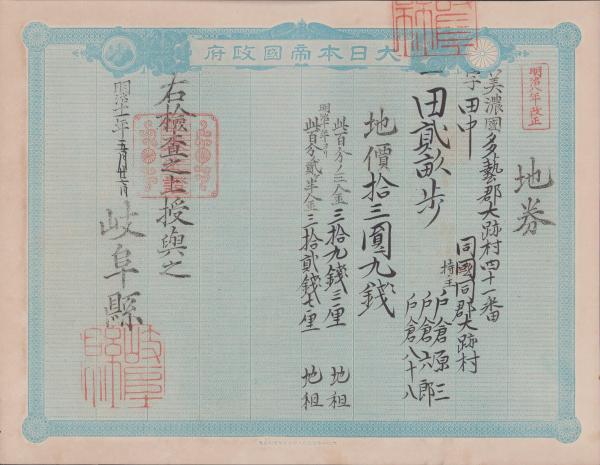 大日本帝國政府
明治八年改正
地券
美濃國多藝郡大跡村四十一番
字田中
同國同郡大跡村
持主
戸倉源三
戸倉六郎
戸倉八十八
一田貳畝歩
地價拾三圓九錢
此百分ノ三金三拾九錢三厘 地租
明治十年ヨリ
此百分ノ貳半金三拾貳錢七厘 地租
右檢査之上授與之
明治十一年五月廿六日
岐阜縣